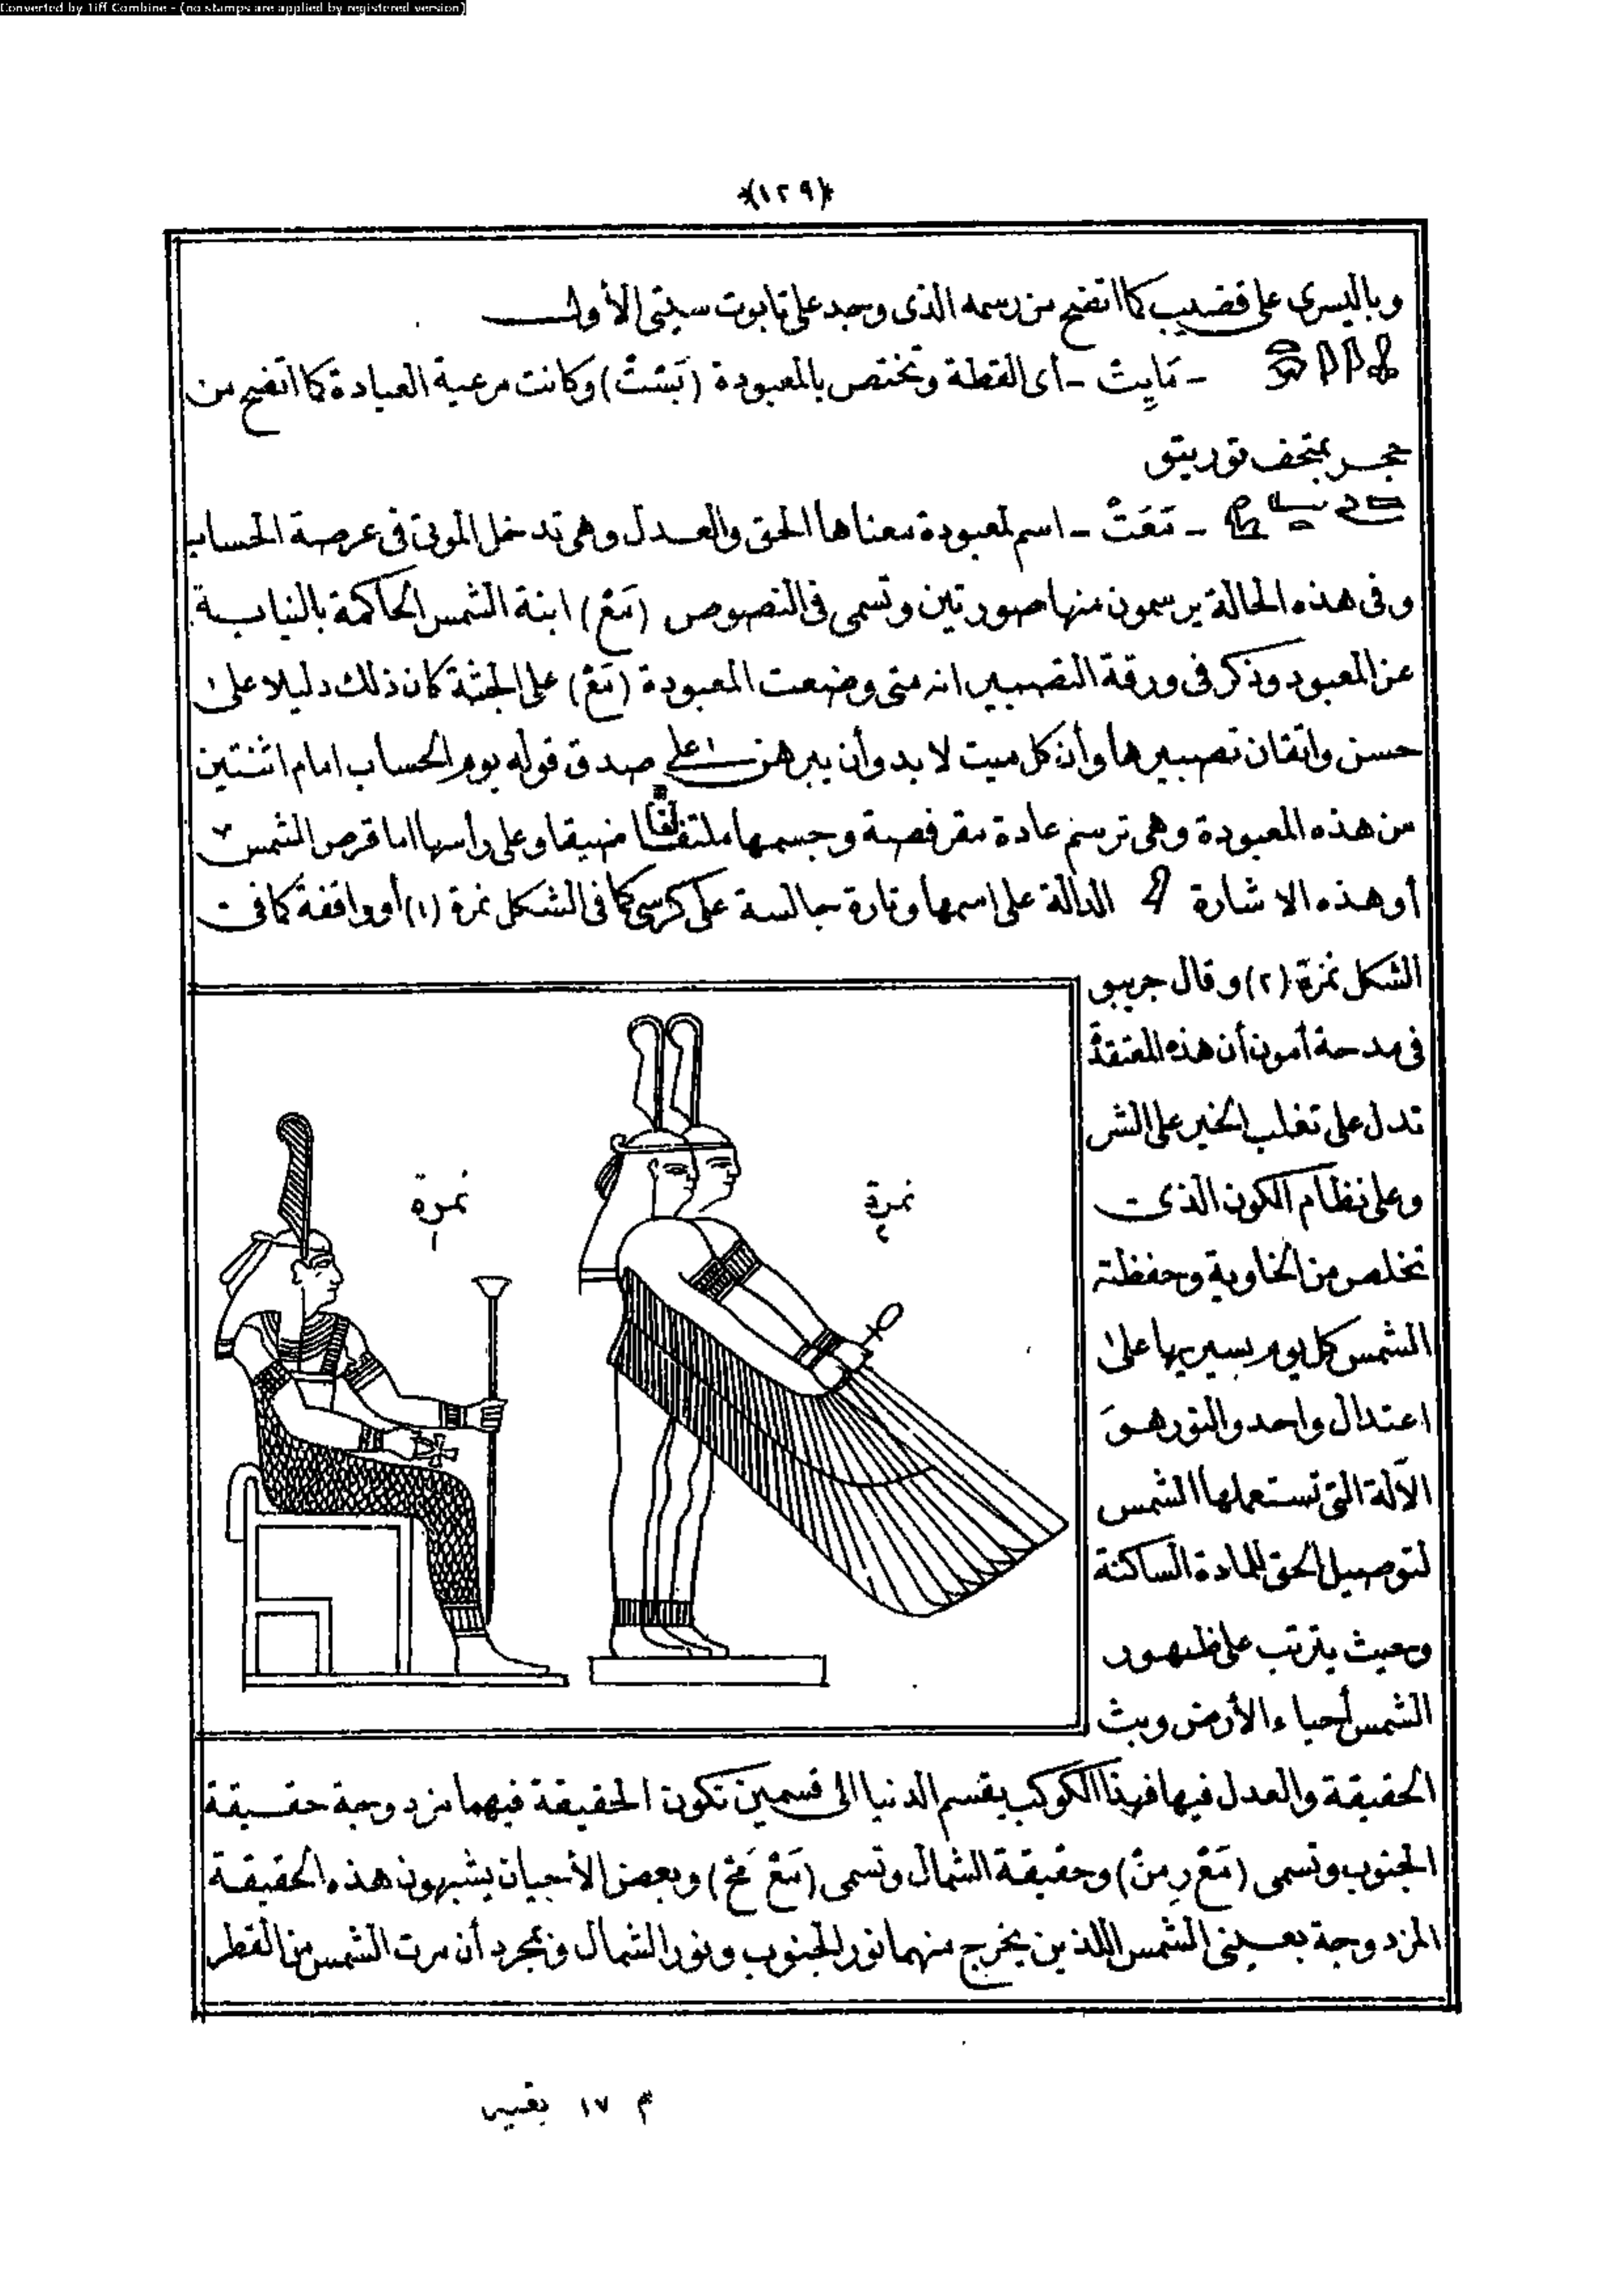 Converted by Tiff Combine - (no stamps are applied by registered version)
﴿١٢٩﴾
وباليسرى على قضيب كما اتضح من رسمه الذى وجد على تابوت سيتى الأول
– مَايِتْ – أى القطة وتختص بالمعبودة (بَسْتْ) وكانت مرعية العبادة كما اتضح من
حجر بمتحف تورينو
– مَعَتْ – اسم لمعبودة معناها الحق والعدل وهى تدخل الموتى فى عرصة الحساب
وفى هذه الحالة يرسمون منها صورتين وتسمى فى النصوص (مَعْ) ابنة الشمس الحاكمة بالنيابة
عن المعبود وذكر فى ورقة التصبير انه متى وضعت المعبودة (مَعْ) على الجثة كان ذلك دليلا على
حسن واتقان تصبيرها وأن كل ميت لا بد وأن يبرهن على صدق قوله يوم الحساب امام اثنتين
من هذه المعبودة وهى ترسم عادة مقرفصة وجسمها ملتفا ضيقا وعلى رأسها اما قرص الشمس
أو هذه الاشارة الدالة على اسمها وتارة جالسة على كرسى كما فى الشكل نمرة (١) أو واقفة كما فى
الشكل نمرة (٢) وقال جريبو
فى مدحة أمون أن هذه المعتقدة
تدل على تغلب الخير على الشر
وعلى نظام الكون الذى
تخلص من الخاوية وحفظته
الشمس كل يوم بسيرها على
اعتدال واحد والنور هو
الآلة التى تستعملها الشمس
لتوصيل الحق للمادة الساكنة
وحيث يترتب على ظهور
الشمس أحياء الأرض وبث
نمرة ١
نمرة ٢
الحقيقة والعدل فيها فهذا الكوكب يقسم الدنيا الى قسمين تكون الحقيقة فيهما مزدوجة حقيقة
الجنوب وتسمى (مَعْ رِمِنْ) وحقيقة الشمال وتسمى (مَعْ مَحْ) وبعض الأحيان يشبهون هذه الحقيقة
المزدوجة بعينى الشمس اللذين يخرج منهما نور الجنوب ونور الشمال وبمجرد أن مرت الشمس من القطر
م ١٧